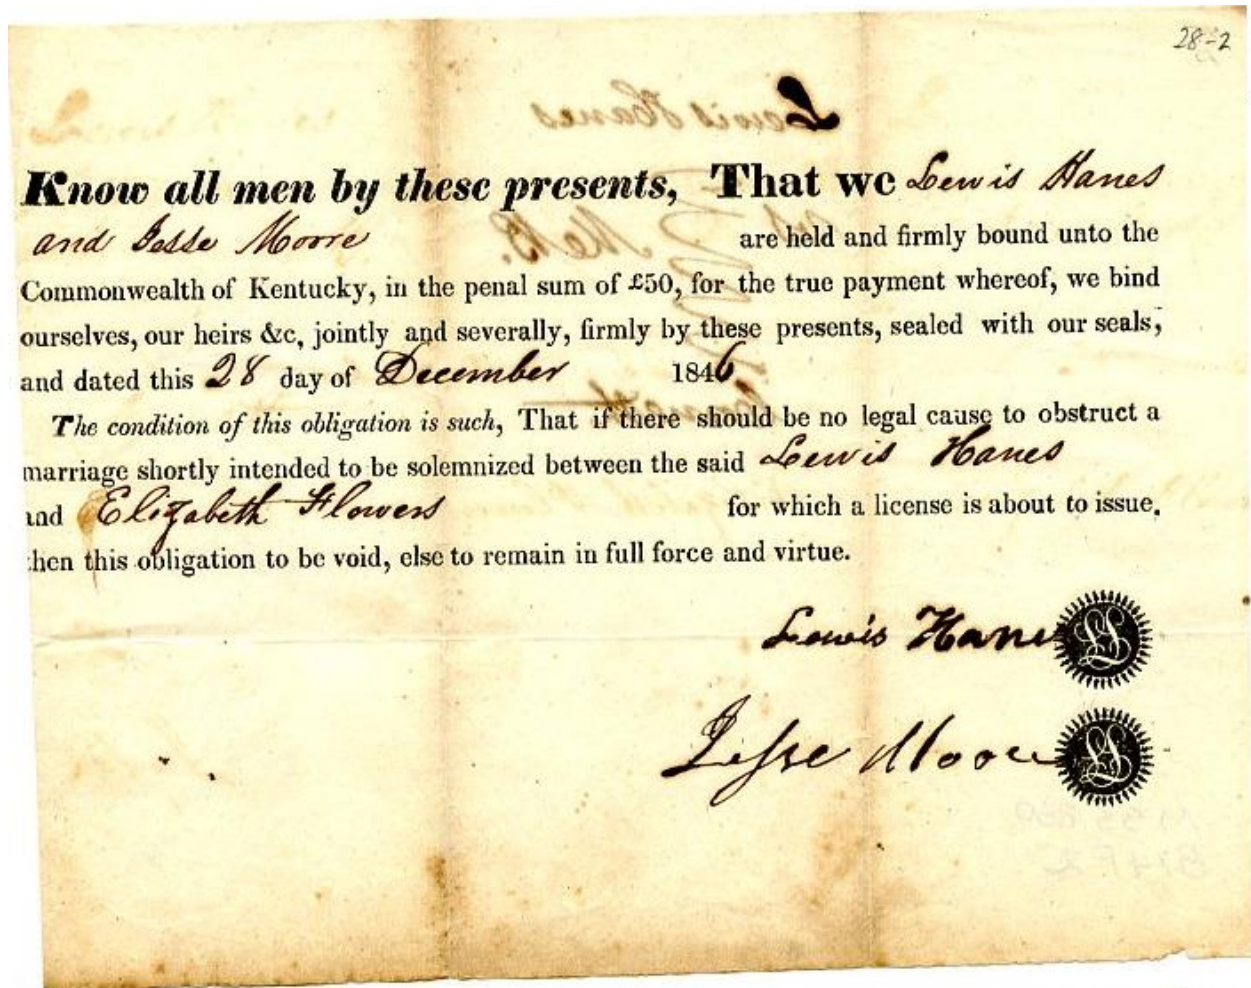 28-2
Lewis Hanes
Know all men by these presents, That we Lewis Hanes
and Jesse Moore are held and firmly bound unto the
Commonwealth of Kentucky, in the penal sum of £50, for the true payment whereof, we bind
ourselves, our heirs &c, jointly and severally, firmly by these presents, sealed with our seals,
and dated this 28 day of December 1846
The condition of this obligation is such, That if there should be no legal cause to obstruct a
marriage shortly intended to be solemnized between the said Lewis Hanes
and Elizabeth Flowers for which a license is about to issue,
then this obligation to be void, else to remain in full force and virtue.
Lewis Hanes
Jesse Moore